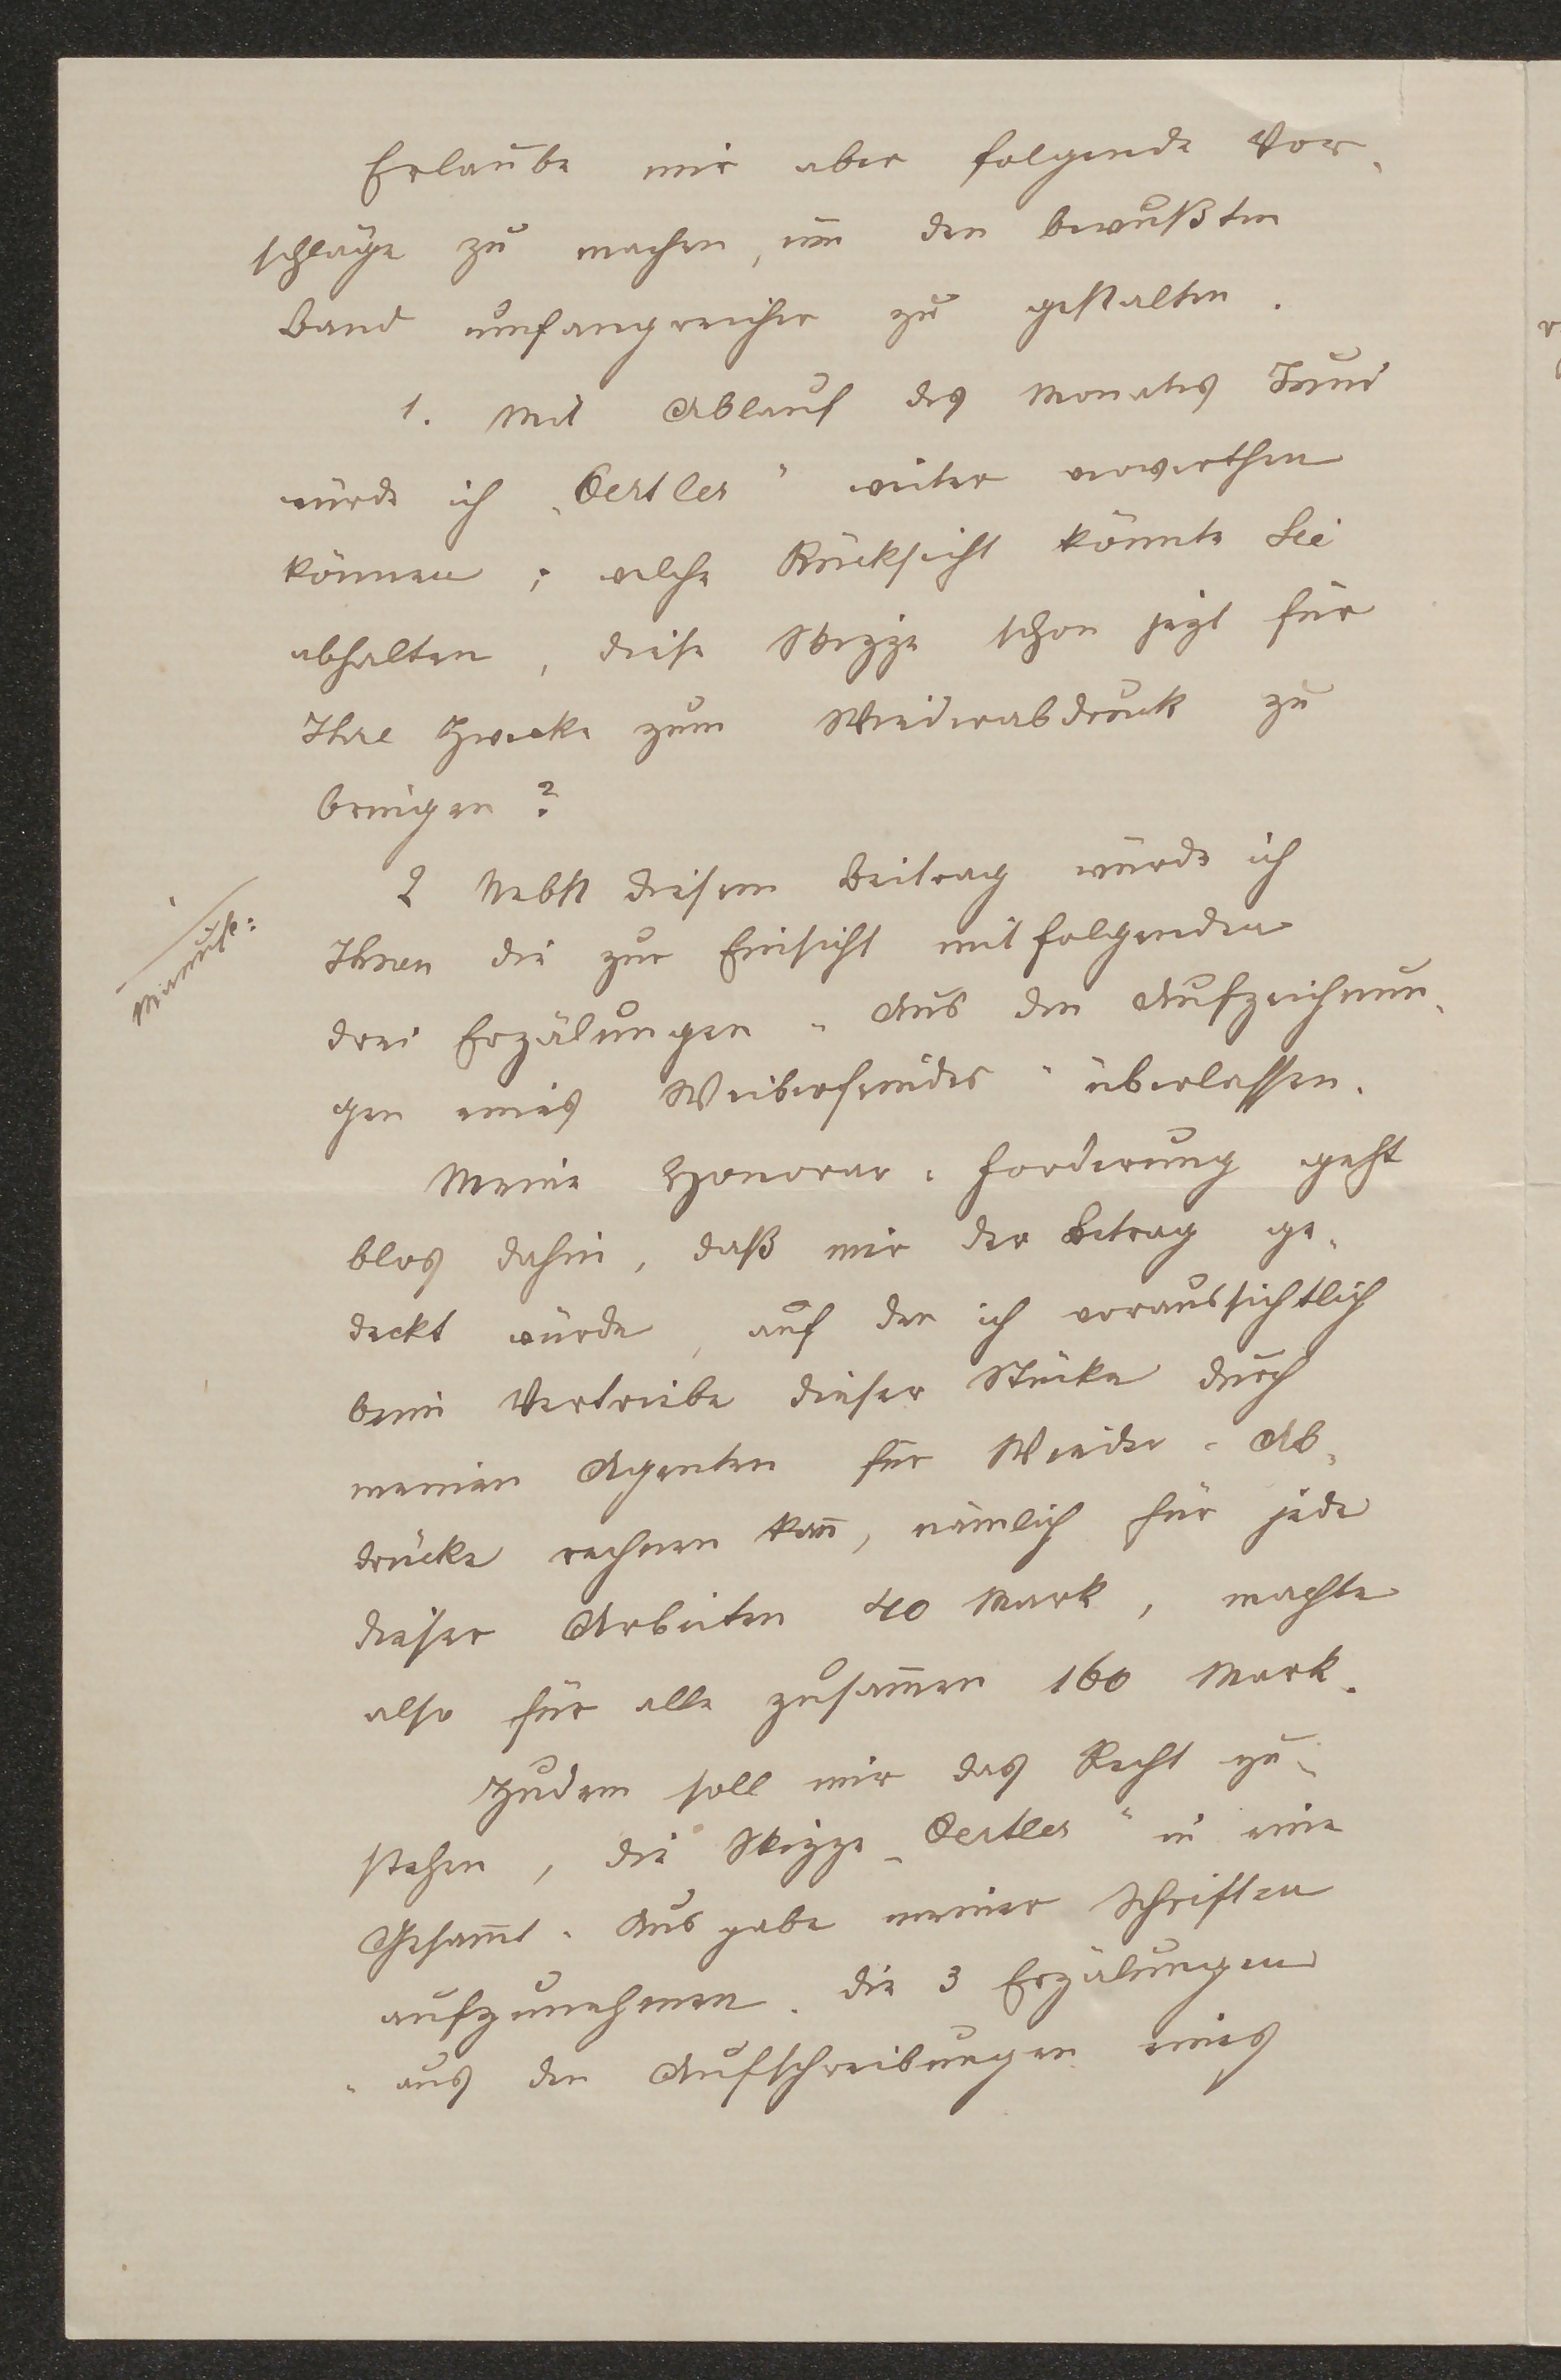 Erlaube mir aber folgende Vor-
schläge zu machen, um den bewußten
Band umfangreicher zu gestalten.
1. Mit Ablauf des Monates Juni
würde ich „Oertler" weiter verwerthen
können; welche Rücksicht könnte Sie
abhalten, diese Skizze schon jezt für
Ihre Zwecke zum Wiederabdruck zu
bringen?
2 Nebst diesem Beitrag würde ich
Ihnen die zur Einsicht mitfolgenden
drei Erzälungen „Aus den Aufzeichnun-
gen eines Weiberfeindes" überlassen.
Meine Honorar-Forderung geht
blos dahin, daß mir der Betrag ge-
deckt würde, auf den ich voraussichtlich
beim Vertriebe dieser Stücke durch
meinen Agenten für Wieder-Ab-
drücke rechnen kan̄, nämlich für jede
dieser Arbeiten 40 Mark, machte
also für alle zusam̄en 160 Mark.
Zudem soll mir das Recht zu-
stehen, die Skizze „Oertler" in eine
Gesam̄t-Ausgabe meiner Schriften
aufzunehmen. die 3 Erzälungen
„aus den Aufschreibungen eines